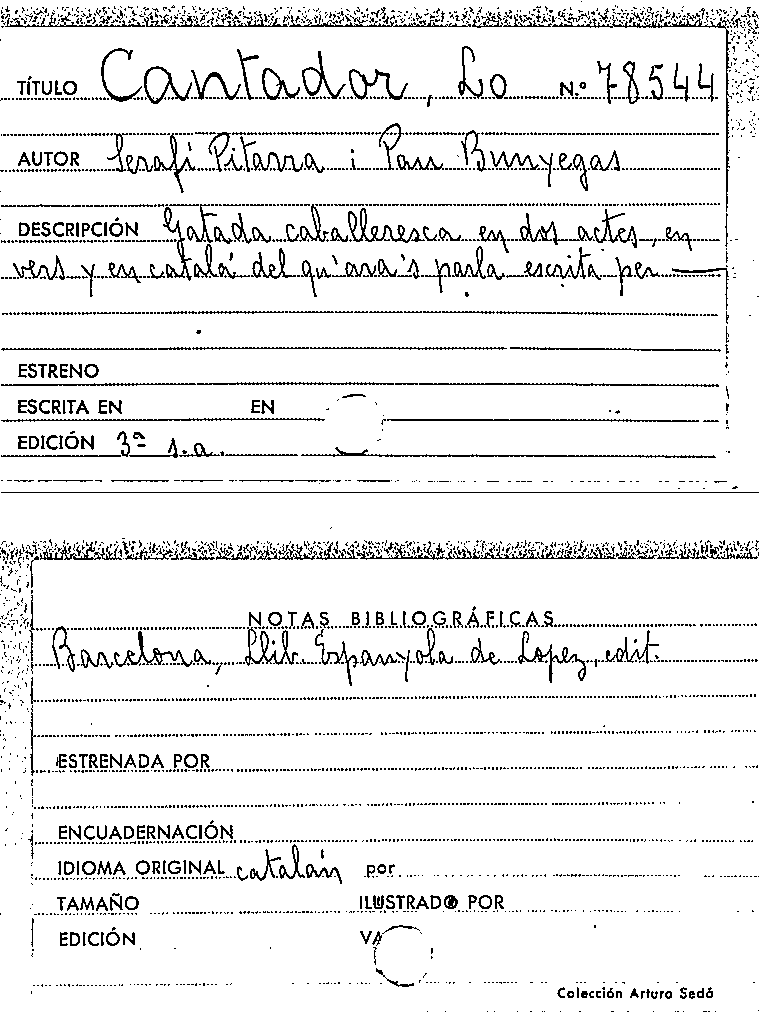 TÍTULO Cantador, Lo N.º 78544
AUTOR Serafí Pitarra i Pau Bunyegas
DESCRIPCIÓN Gatada caballeresca en dos actes, en
vers y en catalá del qu'ara's parla escrita per ——
ESTRENO
ESCRITA EN EN
EDICIÓN 3ª s.a.
NOTAS BIBLIOGRÁFICAS
Barcelona, Llib. Espanyola de Lopez, edit.
ESTRENADA POR
ENCUADERNACIÓN
IDIOMA ORIGINAL catalán por
TAMAÑO ILUSTRADO POR
EDICIÓN
Colección Arturo Sedó